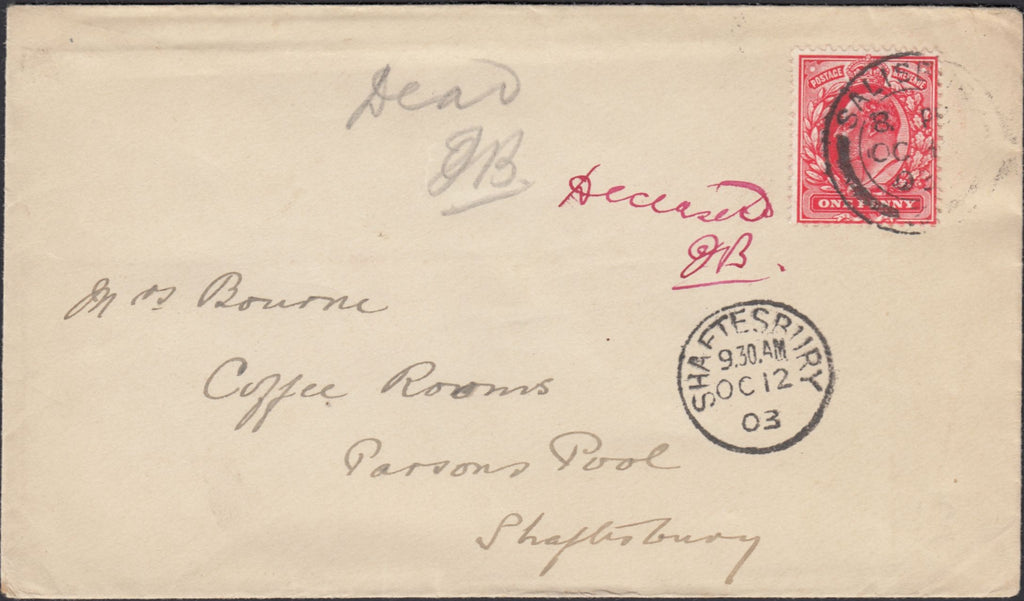 Dead
JB.
Deceased
JB.
POSTAGE REVENUE
ONE PENNY
8
OC
03
SHAFTESBURY
9.30.AM
OC 12
03
Mrs Bourne
Coffee Rooms
Parsons Pool
Shaftesbury